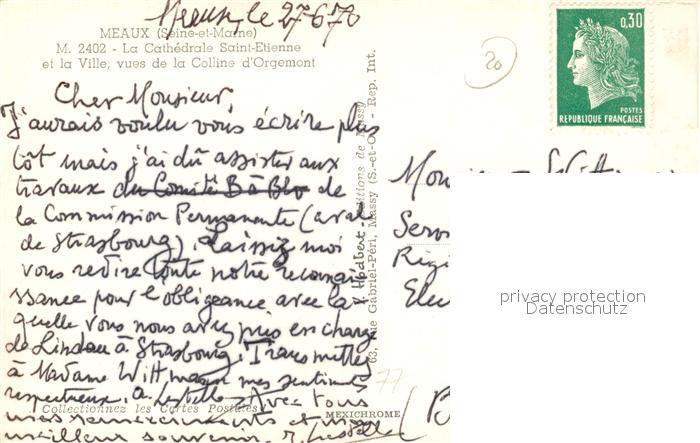 Meaux, le 27-6-70
MEAUX (Seine-et-Marne)
M. 2402 - La Cathédrale Saint-Etienne
et la Ville, vues de la Colline d'Orgemont
20
0,30
POSTES
REPUBLIQUE FRANÇAISE
Cher Monsieur,
J'aurais voulu vous écrire plus
tôt mais j'ai dû assister aux
travaux du Comité de
la Commission Permanente (aval
de Strasbourg). Laissez moi
vous redire toute notre reconnai
ssance pour l'obligeance avec la-
quelle vous nous avez pris en charge
de Lindau à Strasbourg. Transmettez
à Madame Wittmann mes sentiments
respectueux. Avec tous
mes remerciements et mon
meilleur souvenir.
Collectionnez les Cartes Postales
MEXICHROME
Editions de Massy
63, rue Gabriel-Péri, Massy (S.-et-O.) - Rep. Int.
77
privacy protection
Datenschutz